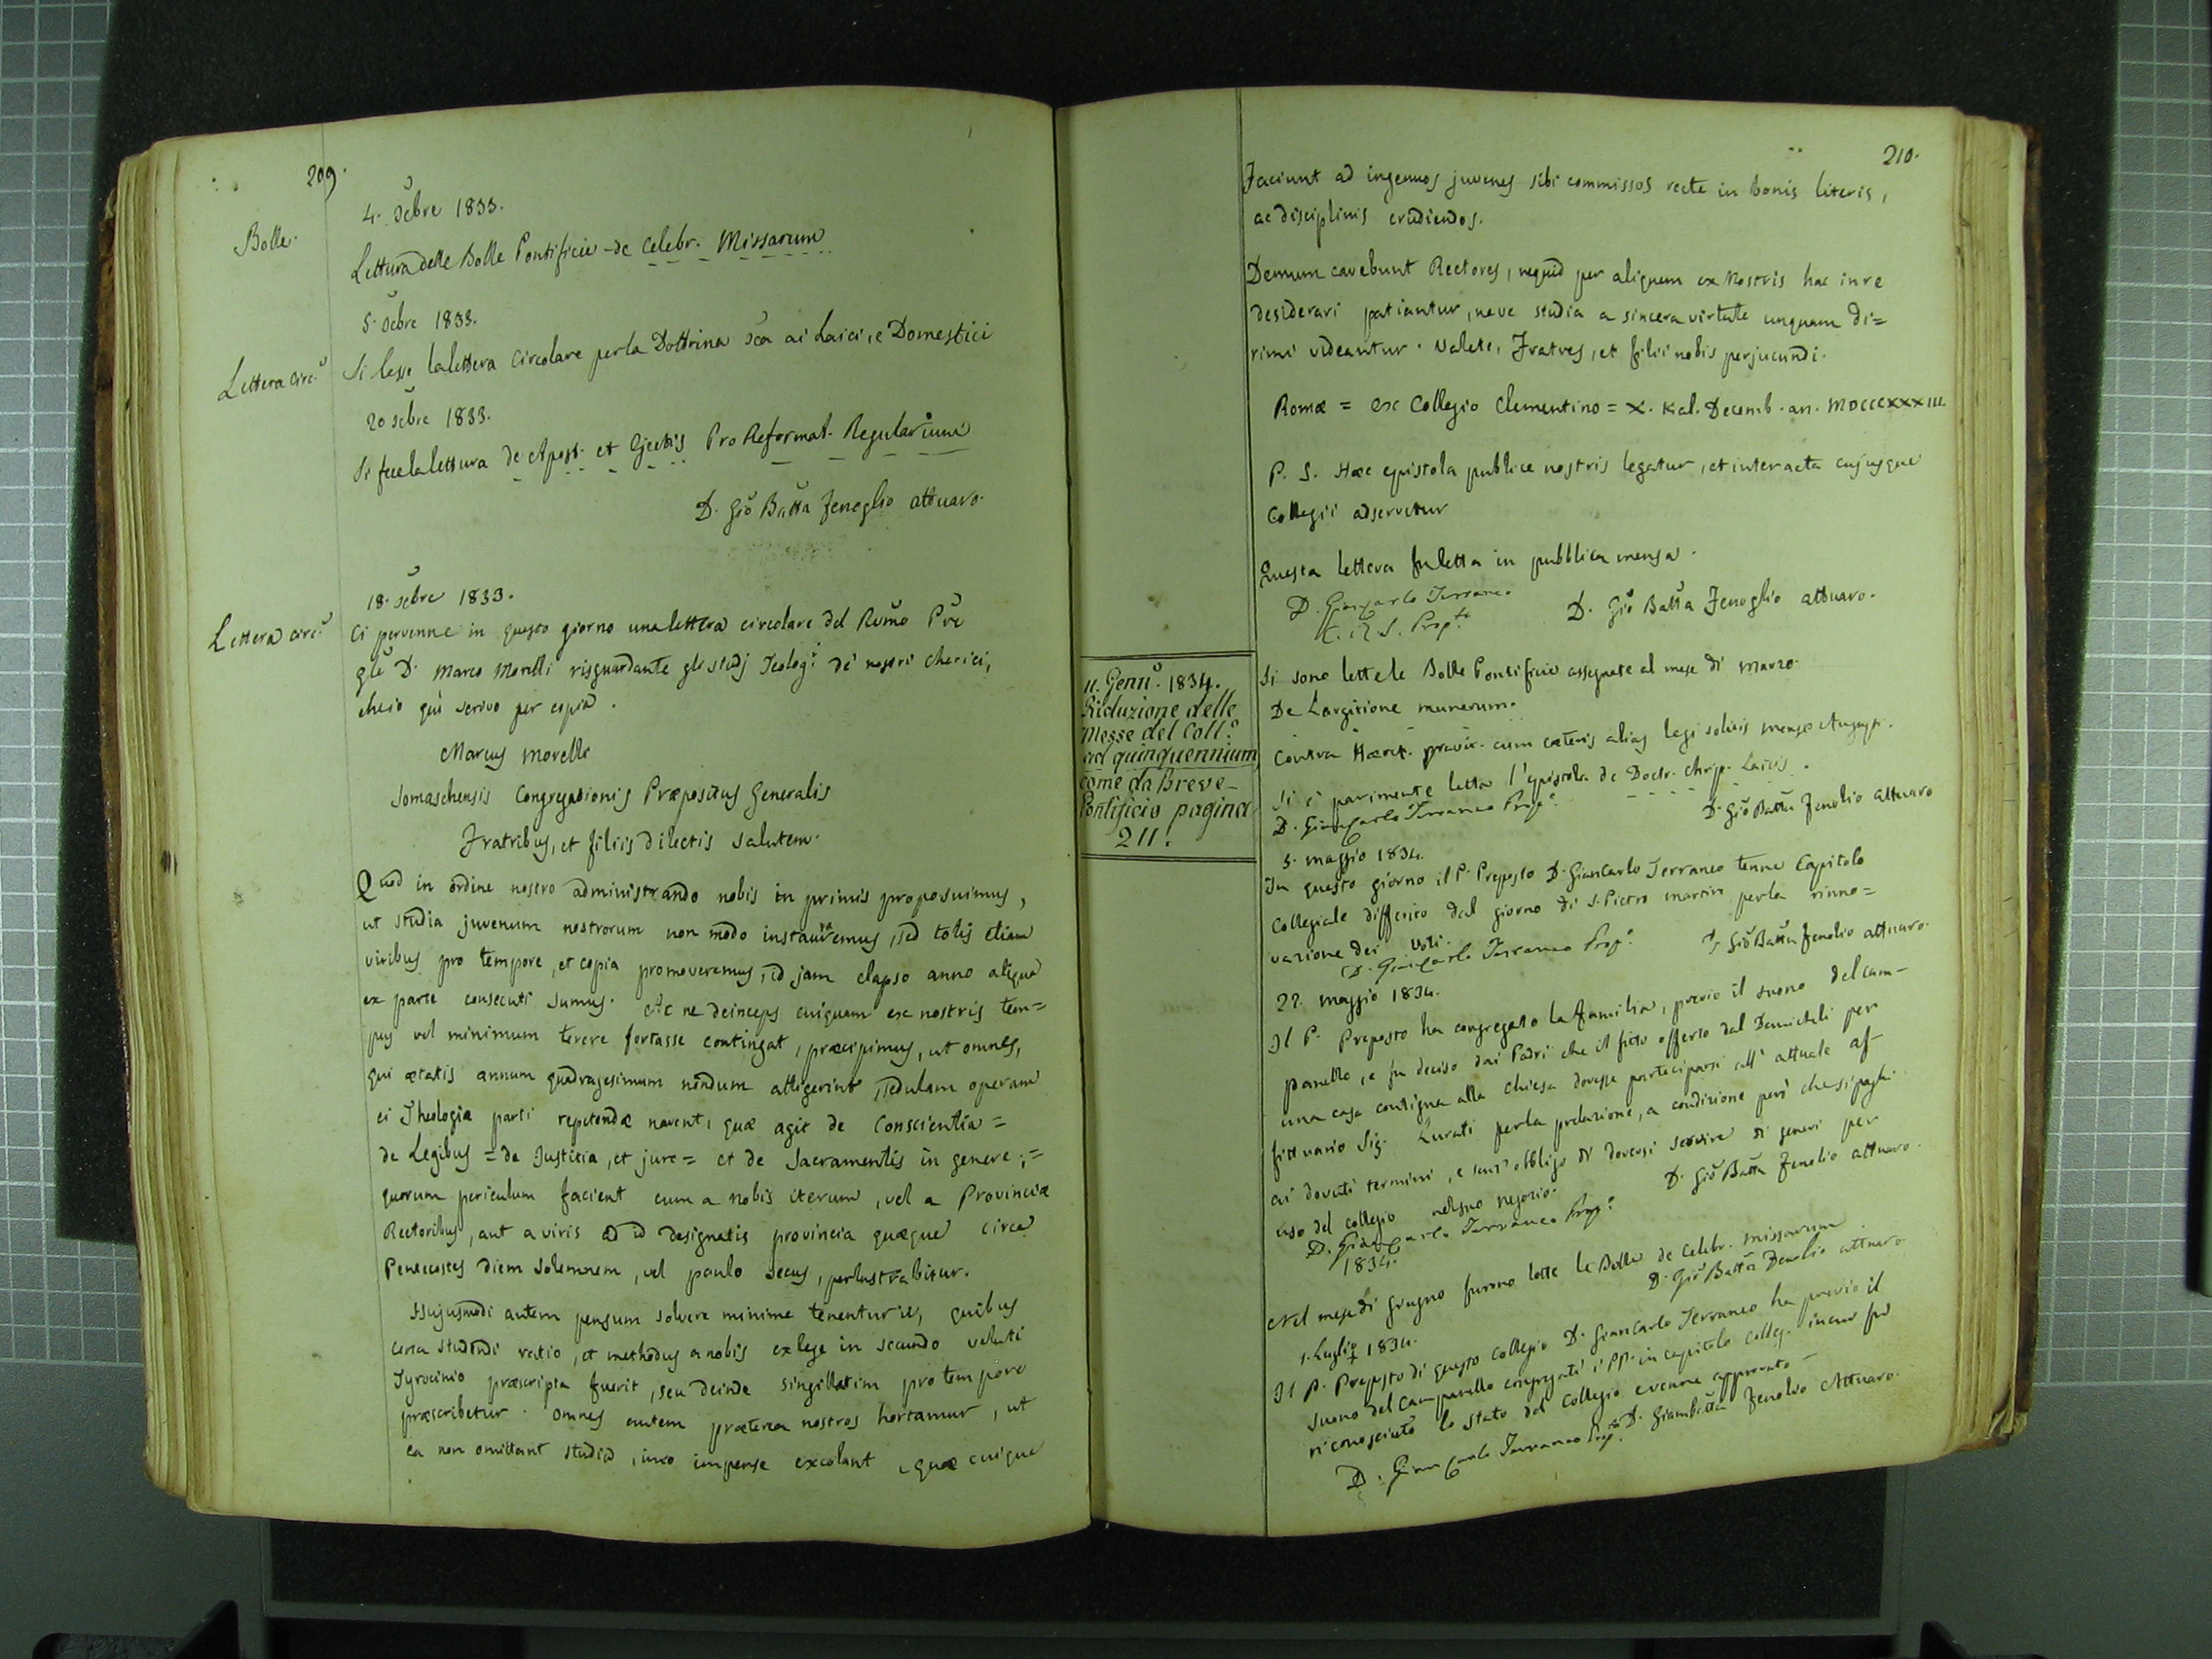 209.
4. Xbre 1833.
Bolle.
Lettura delle Bolle Pontificie - de Celebr. Missarum
5. Xbre 1833.
Lettera circ.
Si lesse la lettera Circolare per la Dottrina Xa ai Laici, e Domestici
20 Xbre 1833.
Si fece la lettura de Apost. et Ejectis Pro Reformat. Regularium
D. Gio Batta Fenoglio attuaro.
18. Xbre 1833.
Lettera circ.
Ci pervenne in questo giorno una lettera circolare del Rmo Pre
Gle D. Marco Morelli risguardante gli studj Teologi de' nostri cherici,
che io quì scrivo per copia.
Marcus Morelli
Somaschensis Congregationis Præpositus Generalis
Fratribus, et filiis dilectis salutem.
Quod in ordine nostro administrando nobis in primis proposuimus,
ut studia juvenum nostrorum non modo instauraremus, sed totis etiam
viribus pro tempore, et copia promoveremus, id jam elapso anno aliqua
ex parte consecuti sumus. Ac ne deinceps cuiquam ex nostris tem=
pus vel minimum terere fortasse contingat, præcipimus, ut omnes,
qui ætatis annum quadragesimum nondum attigerint, sedulam operam
ei Theologiæ parti repetendæ navent, quæ agit de Conscientia =
de Legibus = de Justitia, et jure = et de Sacramentis in genere; =
quorum periculum facient cum a nobis iterum, vel a Provinciæ
Rectoribus, aut a viris ad id designatis provincia quæque circa
Pentecostes diem solemnem, vel paulo secus, perlustrabitur.
Hujusmodi autem pensum solvere minime tenentur ii, quibus
certa studendi ratio, et methodus a nobis ex lege in secundo veluti
Tyrocinio præscripta fuerit, seu deinde singillatim pro tempore
præscribetur. Omnes autem præterea nostros hortamur, ut
ea non omittant studia, imo impense excolant, quæ cuique
210.
Faciunt ad ingenuos juvenes sibi commissos recte in bonis literis,
ac disciplinis erudiendos.
Demum cavebunt Rectores, nequid per aliquem ex Nostris hac in re
desiderari patiantur, neve studia a sincera virtute unquam di=
rimi videantur. Valete, Fratres, et filii nobis perjucundi.
Romæ = ex Collegio Clementino = X. Kal. Decemb. an. MDCCCXXXIII
P. S. Hæc epistola publice nostris legatur, et inter acta cujusque
Collegii adservetur
Questa lettera fu letta in pubblica mensa.
D. Giancarlo Terraneo
C. R. S. Prop.to
D. Gio Batta Fenoglio attuaro.
Si sono lette le Bolle Pontificie assegnate al mese di Marzo.
De Largitione munerum.
Contra Hæret. pravit. cum cæteris alias legi solitis mense Augusti.
Si è parimente letta l'epistola de Doctr. Chris. Laicis.
D. Giancarlo Terraneo Prop.o
D. Gio Batta Fenolio attuaro
11. Genn. 1834.
Riduzione delle
Messe del Coll.o
ad quinquennium,
come da Breve
Pontificio pagina
211.
5. maggio 1834.
In questo giorno il P. Preposto D. Giancarlo Terraneo tenne Capitolo
Collegiale differito dal giorno di S. Pietro martire per la rinno=
vazione dei voti.
D. Giancarlo Terraneo Prop.o
D. Gio Batta Fenolio attuaro.
22. maggio 1834.
Il P. Preposto ha congregato la famiglia, previo il suono del cam-
panello, e fu deciso dai Padri che il fitto offerto dal Demicheli per
una casa contigua alla chiesa dovesse parteciparsi all' attuale af
fittuario Sig. Lurati per la prelazione, a condizione però che si paghi
ai dovuti termini, e senz' obbligo di doversi servire di generi per
uso del collegio nel suo negozio.
D. Giancarlo Terraneo Prop.o
D. Gio Batta Fenolio attuaro.
1834.
Nel mese di giugno furono lette le Bolle de Celebr. missarum.
D. Gio Batta Fenolio attuaro
1. Luglio 1834.
Il P. Preposto di questo Collegio D. Giancarlo Terraneo ha previo il
suono del campanello congregati i PP. in capitolo colleg. in cui fu
riconosciuto lo stato del Collegio e venne approvato -
D. Giancarlo Terraneo Prop.o D. Giambatta Fenolio Attuaro.